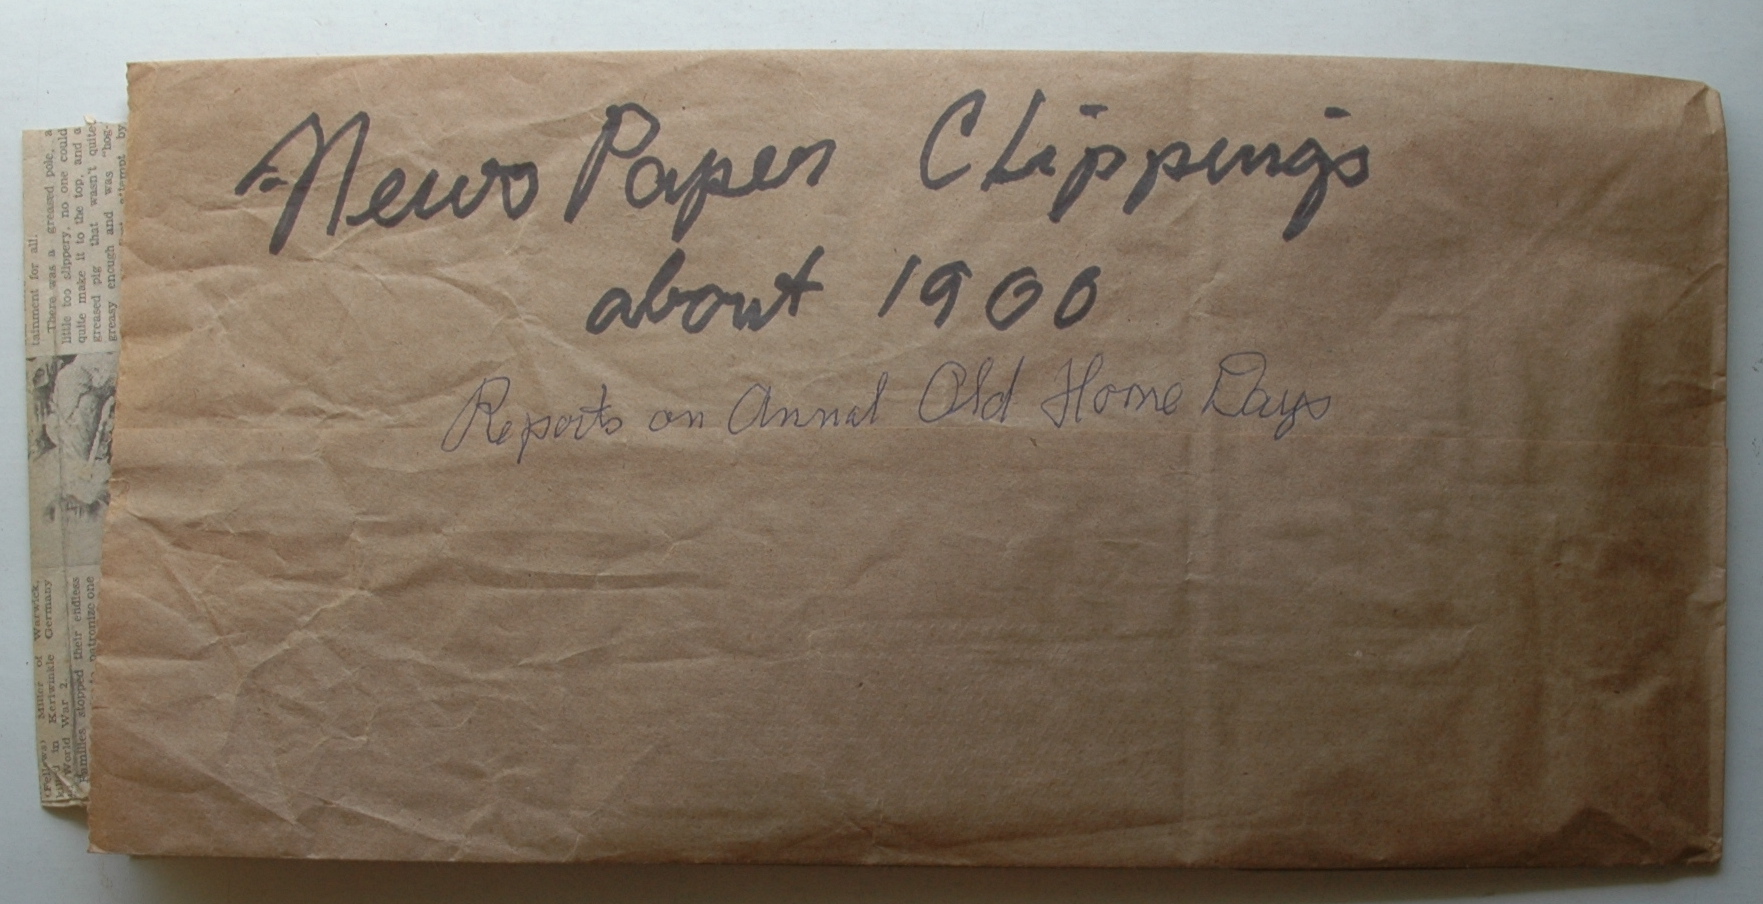 News Paper Clippings
about 1900
Reports on Annal Old Home Days
tainment for all.
There was a greased pole, a
little too slippery, no one could
quite make it to the top, and a
greased pig that wasn't quite
greasy enough and was "hog-
attempt by
Miller of Warwick,
in Keriwinkle Germany
World War 2.
Families stopped their endless
patronize one